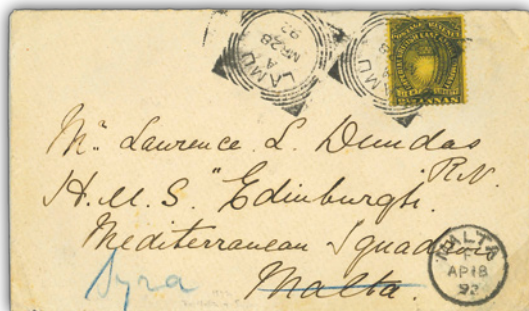 LAMU
A
MR 28
92
LAMU
2½ ANNAS
Mr. Laurence L. Dundas
R.N.
H.M.S. "Edinburgh.
Mediterranean Squadron
Malta.
Syra
MALTA
F
AP 18
92